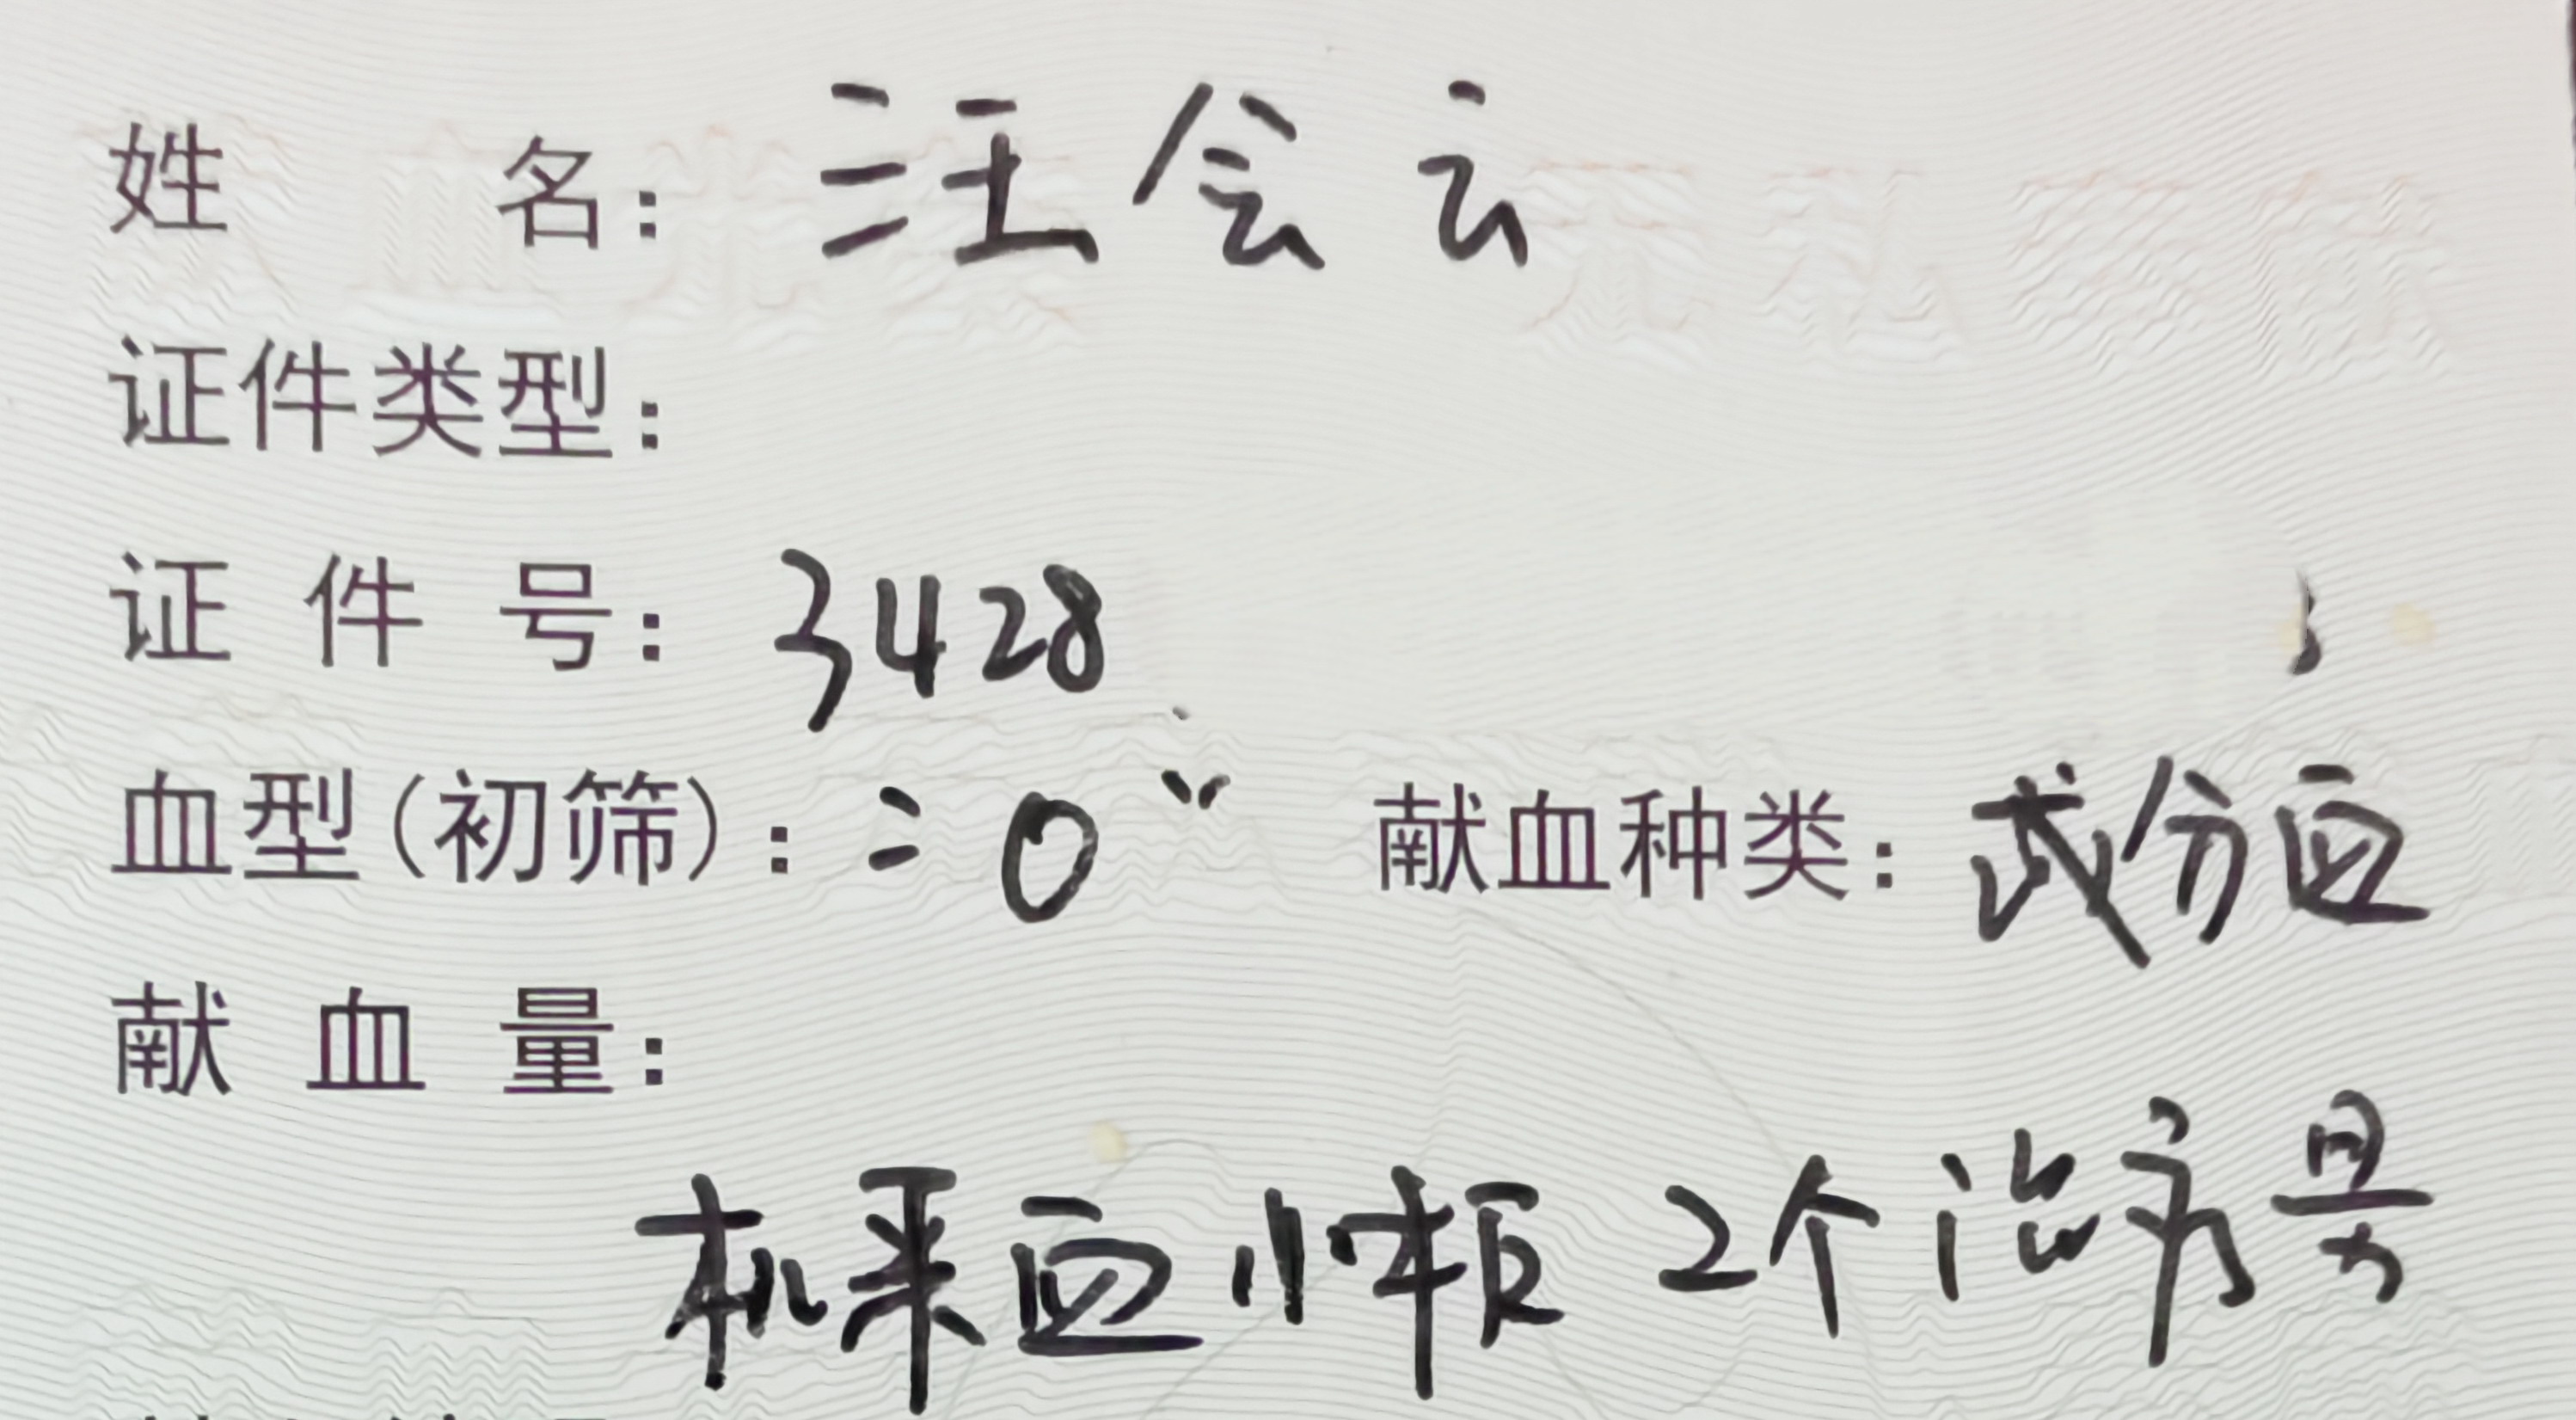 姓名：汪会云
证件类型：
证件号：3428
血型(初筛)："O" 献血种类：成分血
献血量：
机采血小板 2个治疗量